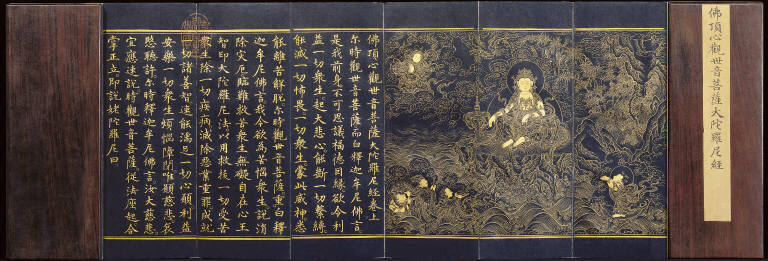 佛頂心觀世音菩薩大陀羅尼經
佛頂心觀世音菩薩大陀羅尼經卷上
尔時觀世音菩薩而白釋迦牟尼佛言
是我前身不可思議福德因緣欲令利
益一切衆生起大悲心能斷一切繫縛
能滅一切怖畏一切衆生蒙此威神悉
能離苦解脫尔時觀世音菩薩重白釋
迦牟尼佛言我今欲為苦惱衆生說消
除灾厄臨難救苦衆生無礙自在心王
智印大陀羅尼法以用救拔一切受苦
衆生除一切疾病滅除惡業重罪成就
一切諸善智速能滿足一切心願利益
安樂一切衆生煩惱障閉唯願慈悲哀
愍聽許尔時釋迦牟尼佛言汝大慈悲
宜應速說時觀世音菩薩從法座起合
掌正立即說姥陀羅尼曰